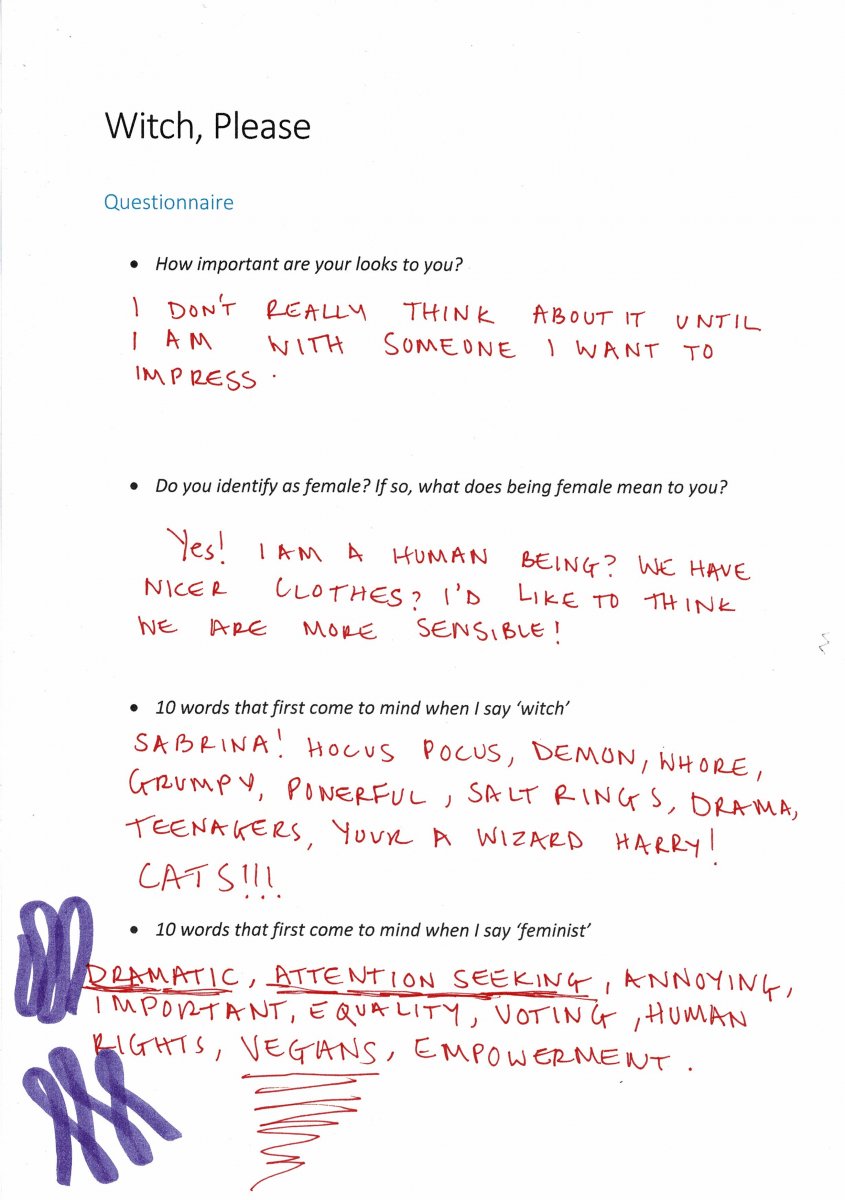 Witch, Please
Questionnaire
• How important are your looks to you?
I DON'T REALLY THINK ABOUT IT UNTIL
I AM WITH SOMEONE I WANT TO
IMPRESS.
• Do you identify as female? If so, what does being female mean to you?
Yes! I AM A HUMAN BEING? WE HAVE
NICER CLOTHES? I'D LIKE TO THINK
WE ARE MORE SENSIBLE!
• 10 words that first come to mind when I say ‘witch’
SABRINA! HOCUS POCUS, DEMON, WHORE,
GRUMPY, POWERFUL, SALT RINGS, DRAMA,
TEENAGERS, YOUR A WIZARD HARRY!
CATS!!!
• 10 words that first come to mind when I say ‘feminist’
DRAMATIC, ATTENTION SEEKING, ANNOYING,
IMPORTANT, EQUALITY, VOTING, HUMAN
RIGHTS, VEGANS, EMPOWERMENT.